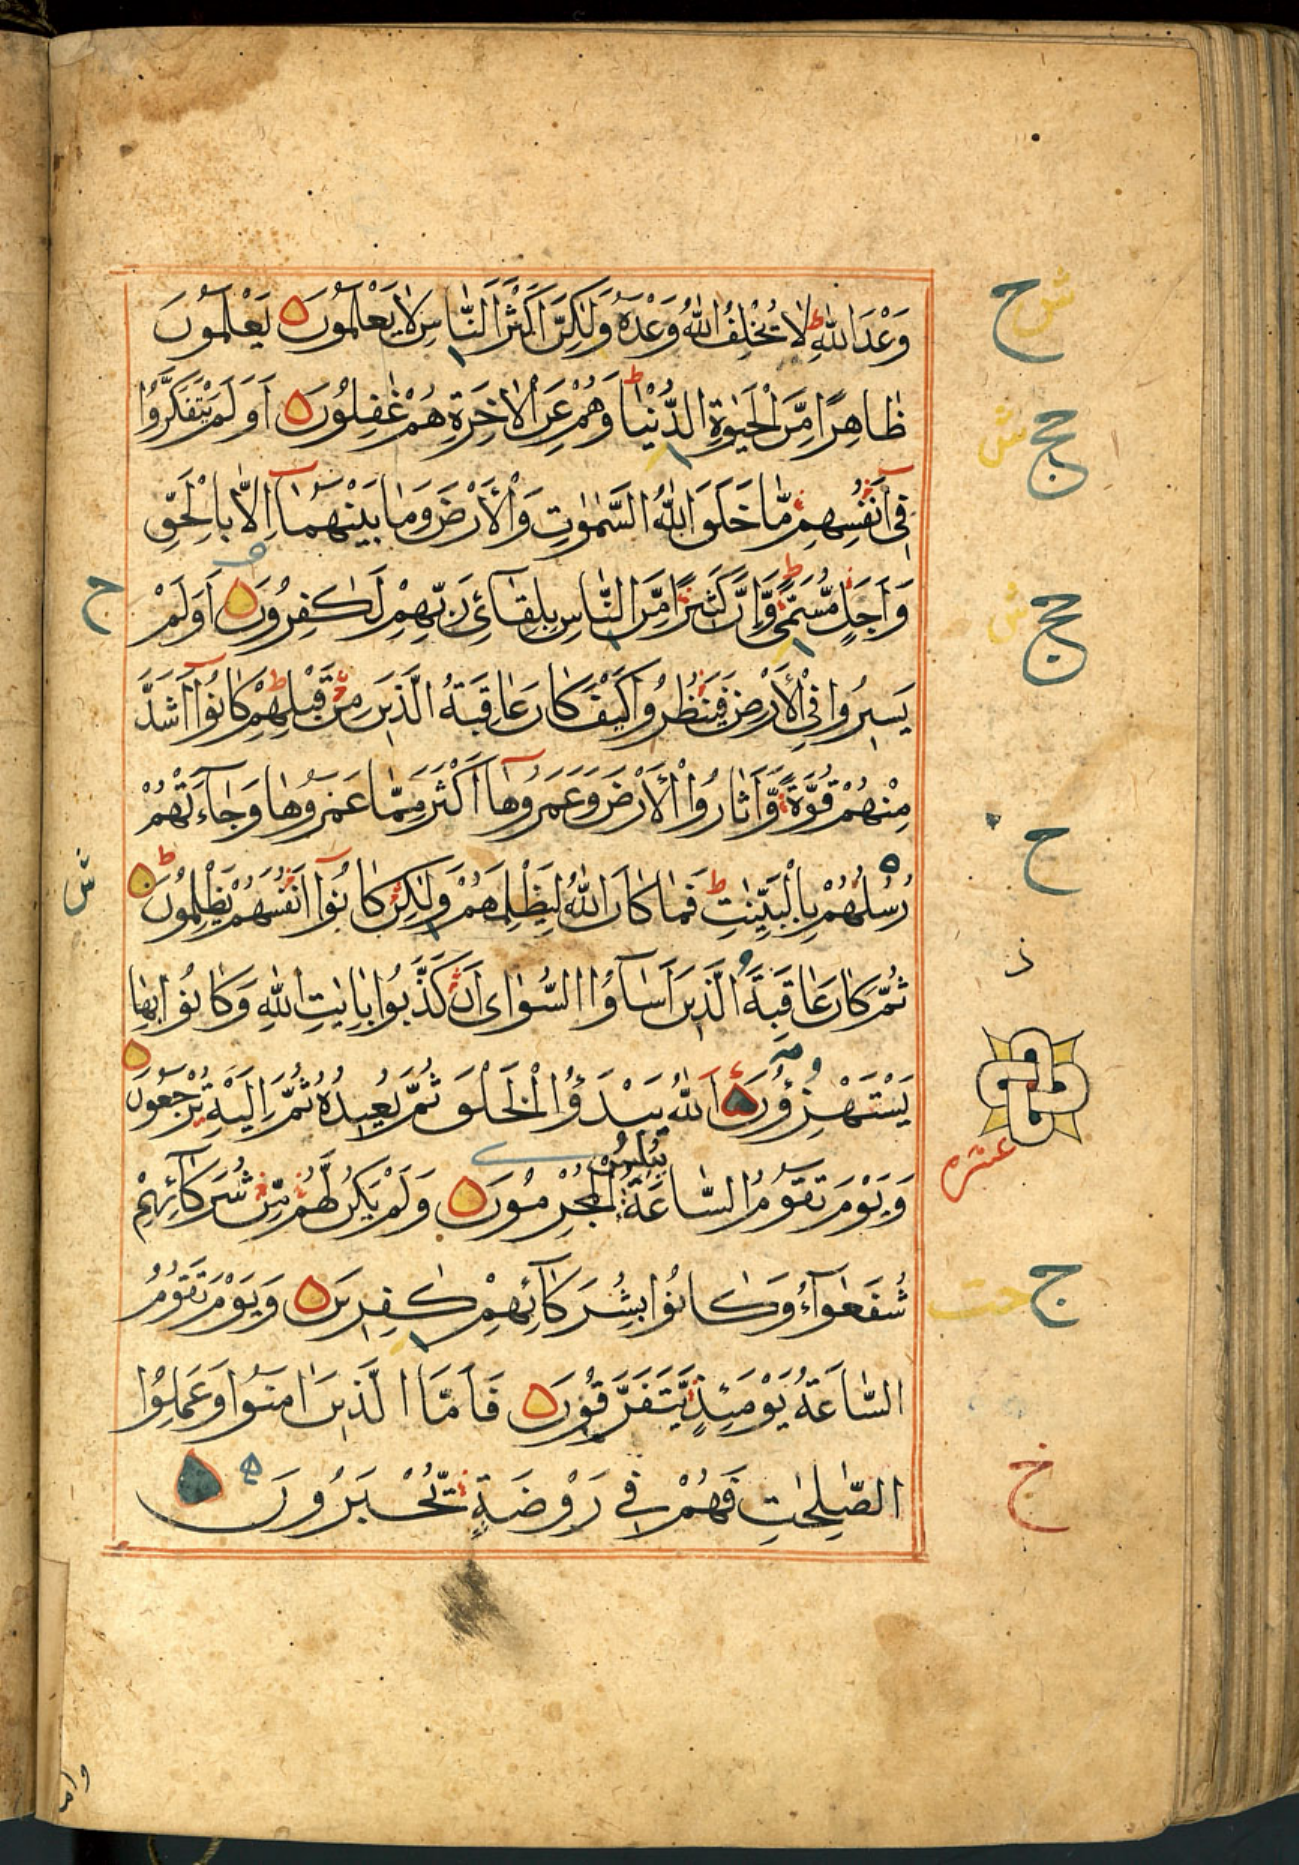 وَعْدَ اللّٰهِ لَا يُخْلِفُ اللّٰهُ وَعْدَهُ وَلٰكِنَّ اَكْثَرَ النَّاسِ لَا يَعْلَمُونَ يَعْلَمُونَ
ظَاهِرًا مِّنَ الْحَيٰوةِ الدُّنْيَا وَهُمْ عَنِ الْاٰخِرَةِ هُمْ غٰفِلُونَ اَوَلَمْ يَتَفَكَّرُوا
فِى اَنْفُسِهِمْ مَّا خَلَقَ اللّٰهُ السَّمٰوٰتِ وَالْاَرْضَ وَمَا بَيْنَهُمَا اِلَّا بِالْحَقِّ
وَاَجَلٍ مُّسَمًّى وَّاِنَّ كَثِيرًا مِّنَ النَّاسِ بِلِقَآئِ رَبِّهِمْ لَكٰفِرُونَ اَوَلَمْ
يَسِيرُوا فِى الْاَرْضِ فَيَنْظُرُوا كَيْفَ كَانَ عَاقِبَةُ الَّذِينَ مِنْ قَبْلِهِمْ كَانُوٓا اَشَدَّ
مِنْهُمْ قُوَّةً وَّاَثَارُوا الْاَرْضَ وَعَمَرُوهَآ اَكْثَرَ مِمَّا عَمَرُوهَا وَجَآءَتْهُمْ
رُسُلُهُمْ بِالْبَيِّنٰتِ فَمَا كَانَ اللّٰهُ لِيَظْلِمَهُمْ وَلٰكِنْ كَانُوٓا اَنْفُسَهُمْ يَظْلِمُونَ
ثُمَّ كَانَ عَاقِبَةَ الَّذِينَ اَسَآؤُا السُّوٰاى اَنْ كَذَّبُوا بِاٰيٰتِ اللّٰهِ وَكَانُوا بِهَا
يَسْتَهْزِؤُنَ اَللّٰهُ يَبْدَؤُا الْخَلْقَ ثُمَّ يُعِيدُهُ ثُمَّ اِلَيْهِ تُرْجَعُونَ
وَيَوْمَ تَقُومُ السَّاعَةُ يُبْلِسُ الْمُجْرِمُونَ وَلَمْ يَكُنْ لَّهُمْ مِّنْ شُرَكَآئِهِمْ
شُفَعٰٓؤُا وَكَانُوا بِشُرَكَآئِهِمْ كٰفِرِينَ وَيَوْمَ تَقُومُ
السَّاعَةُ يَوْمَئِذٍ يَّتَفَرَّقُونَ فَاَمَّا الَّذِينَ اٰمَنُوا وَعَمِلُوا
الصّٰلِحٰتِ فَهُمْ فِى رَوْضَةٍ يُّحْبَرُونَ
عشره